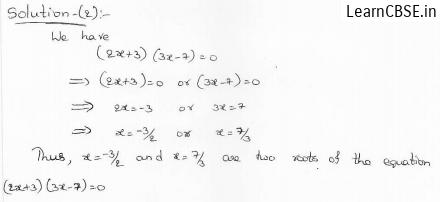 LearnCBSE.in
Solution-(2):-
We have
(2x+3) (3x-7) = 0
⟹ (2x+3)=0 or (3x-7)=0
⟹ 2x=-3 or 3x=7
⟹ x=-3/2 or x=7/3
Thus, x=-3/2 and x=7/3 are two roots of the equation
(2x+3) (3x-7)=0